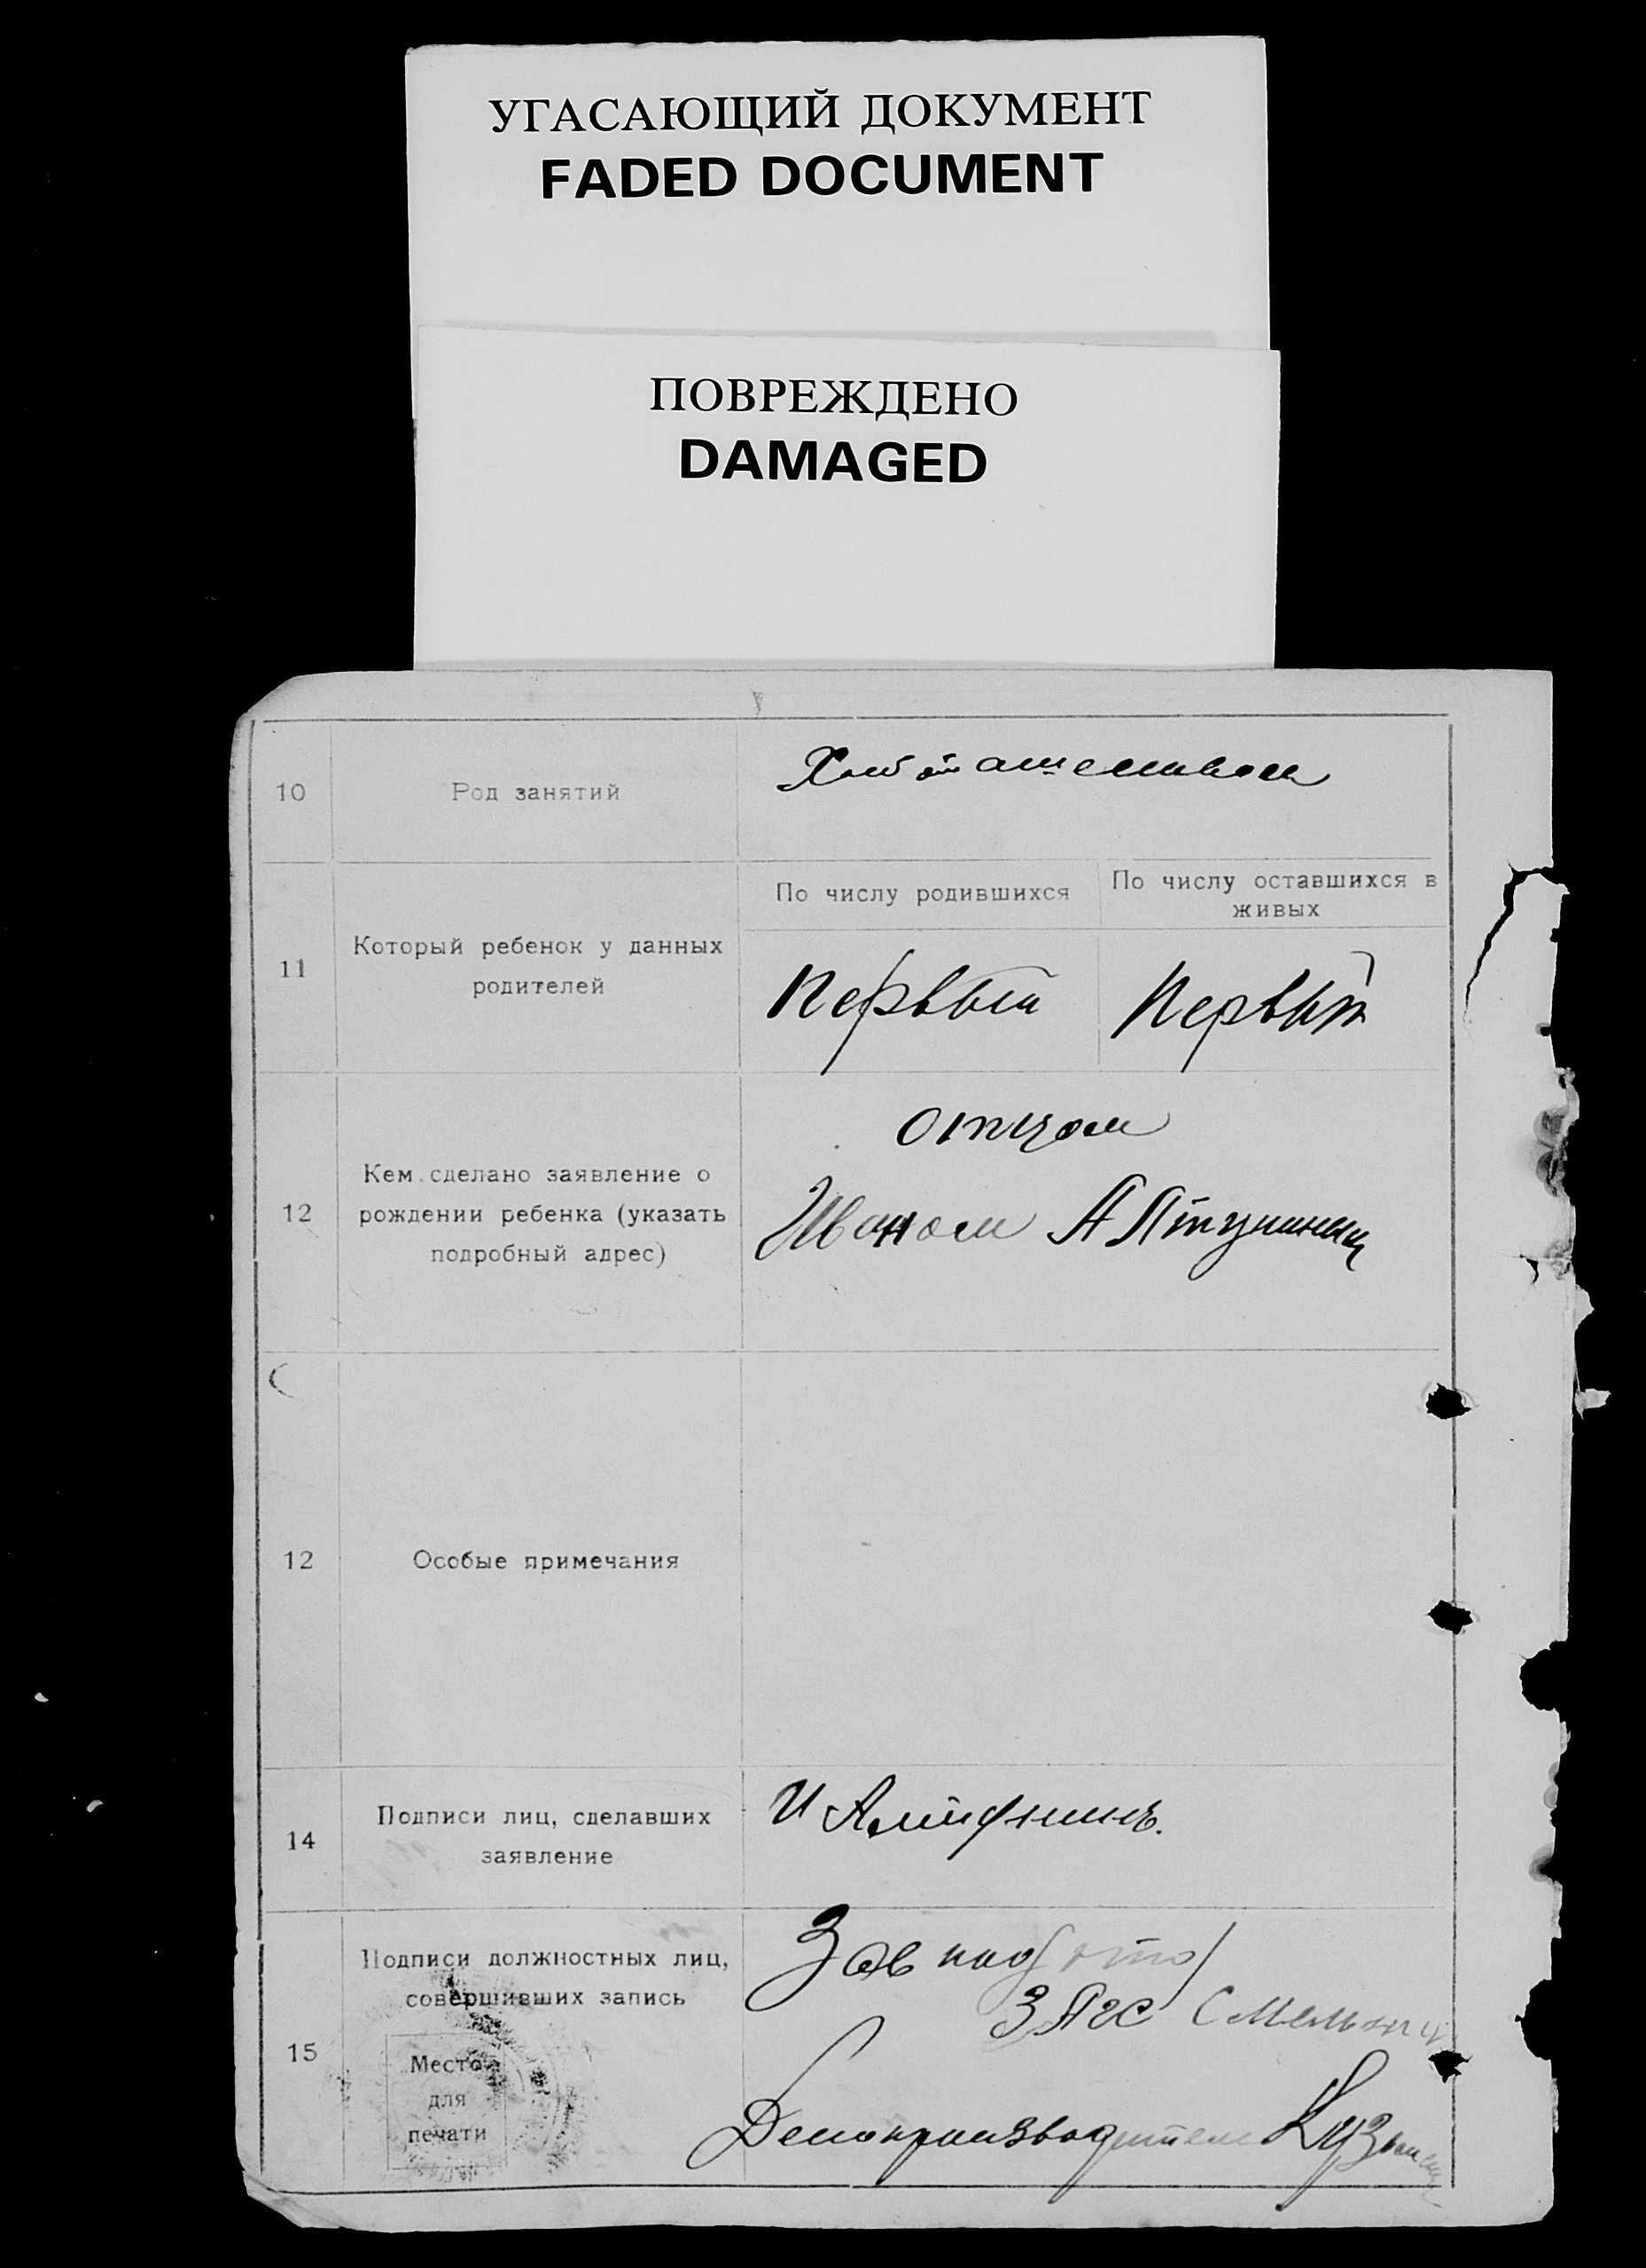 УГАСАЮЩИЙ ДОКУМЕНТ
FADED DOCUMENT
ПОВРЕЖДЕНО
DAMAGED
10
Род занятий
11
Который ребенок у данных
родителей
По числу родившихся
По числу оставшихся в
живых
Первый
Первый
12
Кем сделано заявление о
рождении ребенка (указать
подробный адрес)
отцом
Иваном
12
Особые примечания
14
Подписи лиц, сделавших
заявление
И
15
Подписи должностных лиц,
совершивших запись
Место
для
печати
Зав
ЗАГС
Делопроизводитель